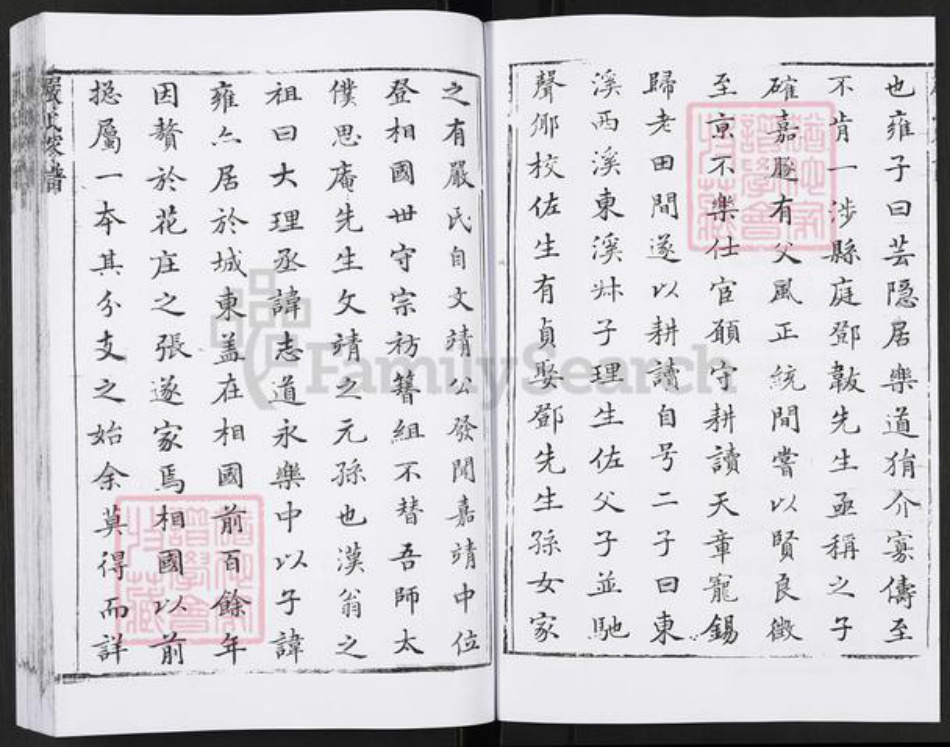 也雍子曰芸隠居樂道狷介寡儔至
不肯一涉縣庭鄧韍先生亟稱之子
確嘉遯有父風正統間嘗以賢良徵
至京不樂仕官願守耕讀天章寵錫
歸老田間遂以耕讀自号二子曰東
溪西溪東溪牀子理生佐父子並馳
聲鄉校佐生有貞娶鄧先生孫女家
之有嚴氏自文靖公發聞嘉靖中位
登相國世守宗祊簪組不替吾師太
僕思庵先生文靖之元孫也漢翁之
祖曰大理丞諱志道永樂中以子諱
雍亽居於城東盖在相國前百餘年
因贅於花庄之張遂家焉相國以前
捴屬一夲其分支之始余莫得而詳
嚴氏家譜
FamilySearch